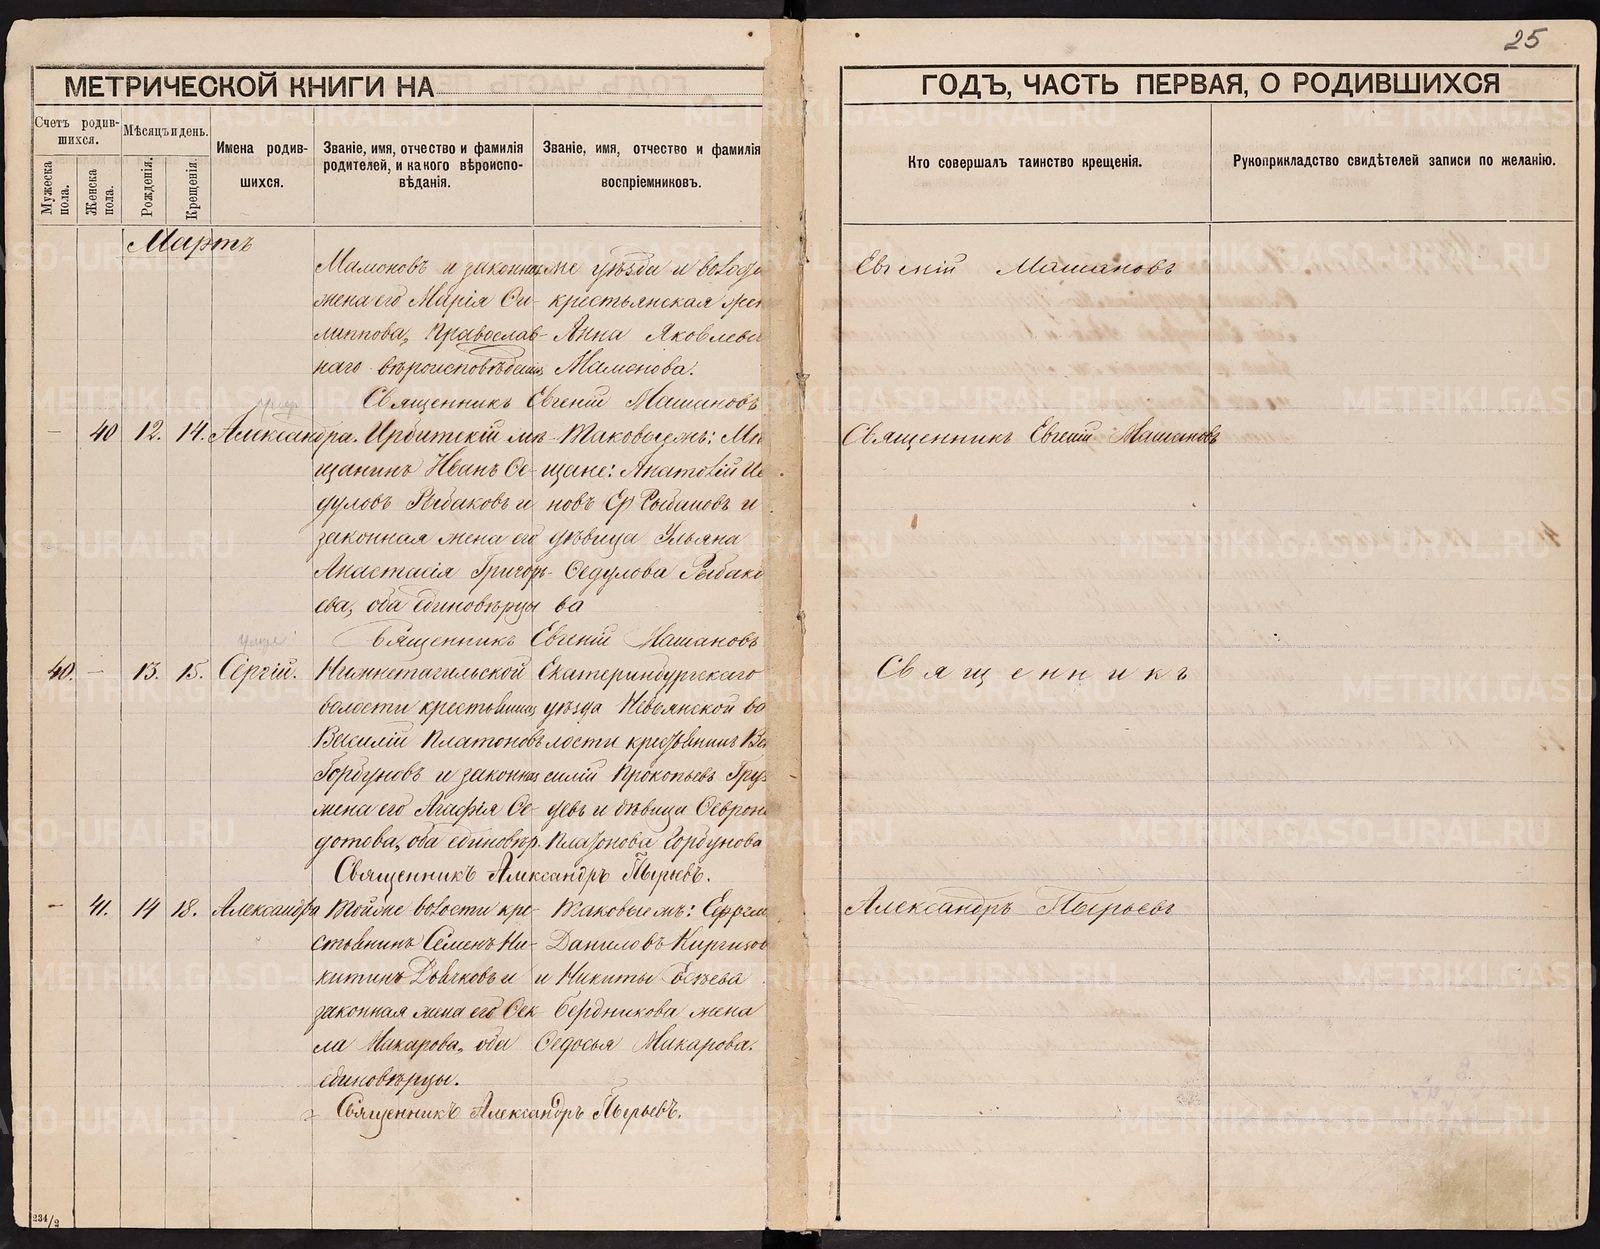 25
МЕТРИЧЕСКОЙ КНИГИ НА
ГОДЪ, ЧАСТЬ ПЕРВАЯ, О РОДИВШИХСЯ
Счетъ родив-
шихся.
Мѣсяцъ и день.
Мужеска пола.
Женска пола.
Рожденія.
Крещенія.
Имена родив-
шихся.
Званіе, имя, отчество и фамилія
родителей, и какого вѣроиспо-
вѣданія.
Званіе, имя, отчество и фамилія
воспріемниковъ.
Кто совершалъ таинство крещенія.
Рукоприкладство свидѣтелей записи по желанію.
Мартъ
Мамоновъ и законная
жена его Марія Фи-
липпова, Православ-
наго вѣроисповѣданія
же уѣзда и волос
крестьянская
Анна Яковлева
Мамонова.
Евгеній Машановъ
Священникъ Евгеній Машановъ
— 40 12. 14. Александра.
Ирбитскій мѣ-
щанинъ Иванъ Ѳе-
дуловъ Рыбаковъ и
законная жена его
Анастасія Григорь-
ева, оба единовѣрцы
Таковыежъ: Мѣ
щане: Анатолій
новъ Рыбаковъ и
дѣвица Ульяна
Ѳедулова Рыбако
ва
Священникъ Евгеній Машановъ
Священникъ Евгеній Машановъ
40. — 13. 15. Сергій.
Нижнетагильской
волости крестьянинъ
Василій Платоновъ
Горбуновъ и законная
жена его Агафія Ѳе-
дотова, оба единовѣр.
Екатеринбургскаго
уѣзда Невьянской во
лости крестьянинъ Ва
силій Прокопьевъ Груз
девъ и дѣвица Феврон
Платонова Горбунова
Священникъ
Священникъ Александръ Пырьевъ.
— 41. 14 18. Александра
Тойже волости кре-
стьянинъ Семенъ Ни-
китинъ Дьячковъ и
законная жена его Ѳек
ла Макарова, оба
единовѣрцы.
Таковыежъ:
Даниловъ Киргизов
и Никиты
Бердникова жена
Ѳедосья Макарова.
Александръ Пырьевъ
Священникъ Александръ Пырьевъ.
234/2
METRIKI.GASO-URAL.RU